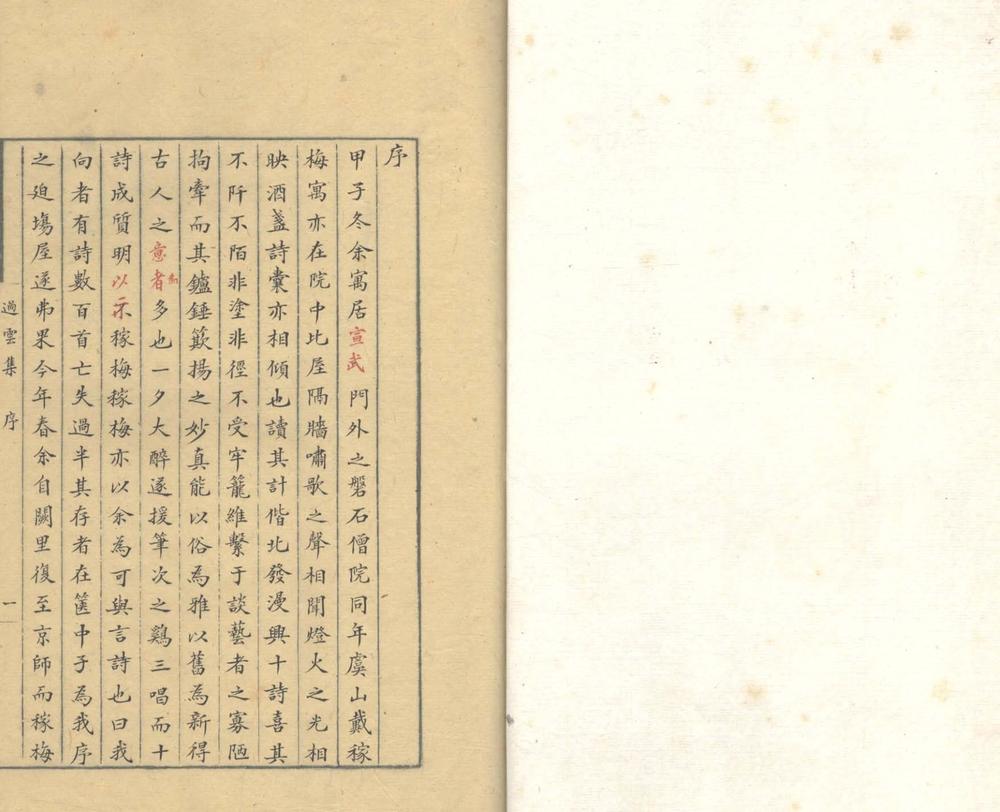 序
甲子冬余寓居宣武門外之磐石僧院同年虞山戴稼
梅寓亦在院中比屋隔牆嘯歌之聲相聞燈火之光相
映酒盞詩囊亦相傾也讀其計偕北發漫興十詩喜其
不阡不陌非塗非徑不受牢籠維繫于談藝者之寡陋
拘牽而其鑪錘簸揚之妙真能以俗為雅以舊為新得
古人之意者多也一夕大醉遂援筆次之鷄三唱而十
詩成質明以示稼梅稼梅亦以余為可與言詩也曰我
向者有詩數百首亡失過半其存者在篋中子為我序
之廹塲屋遂弗果今年春余自闕里復至京師而稼梅
過雲集 序 一